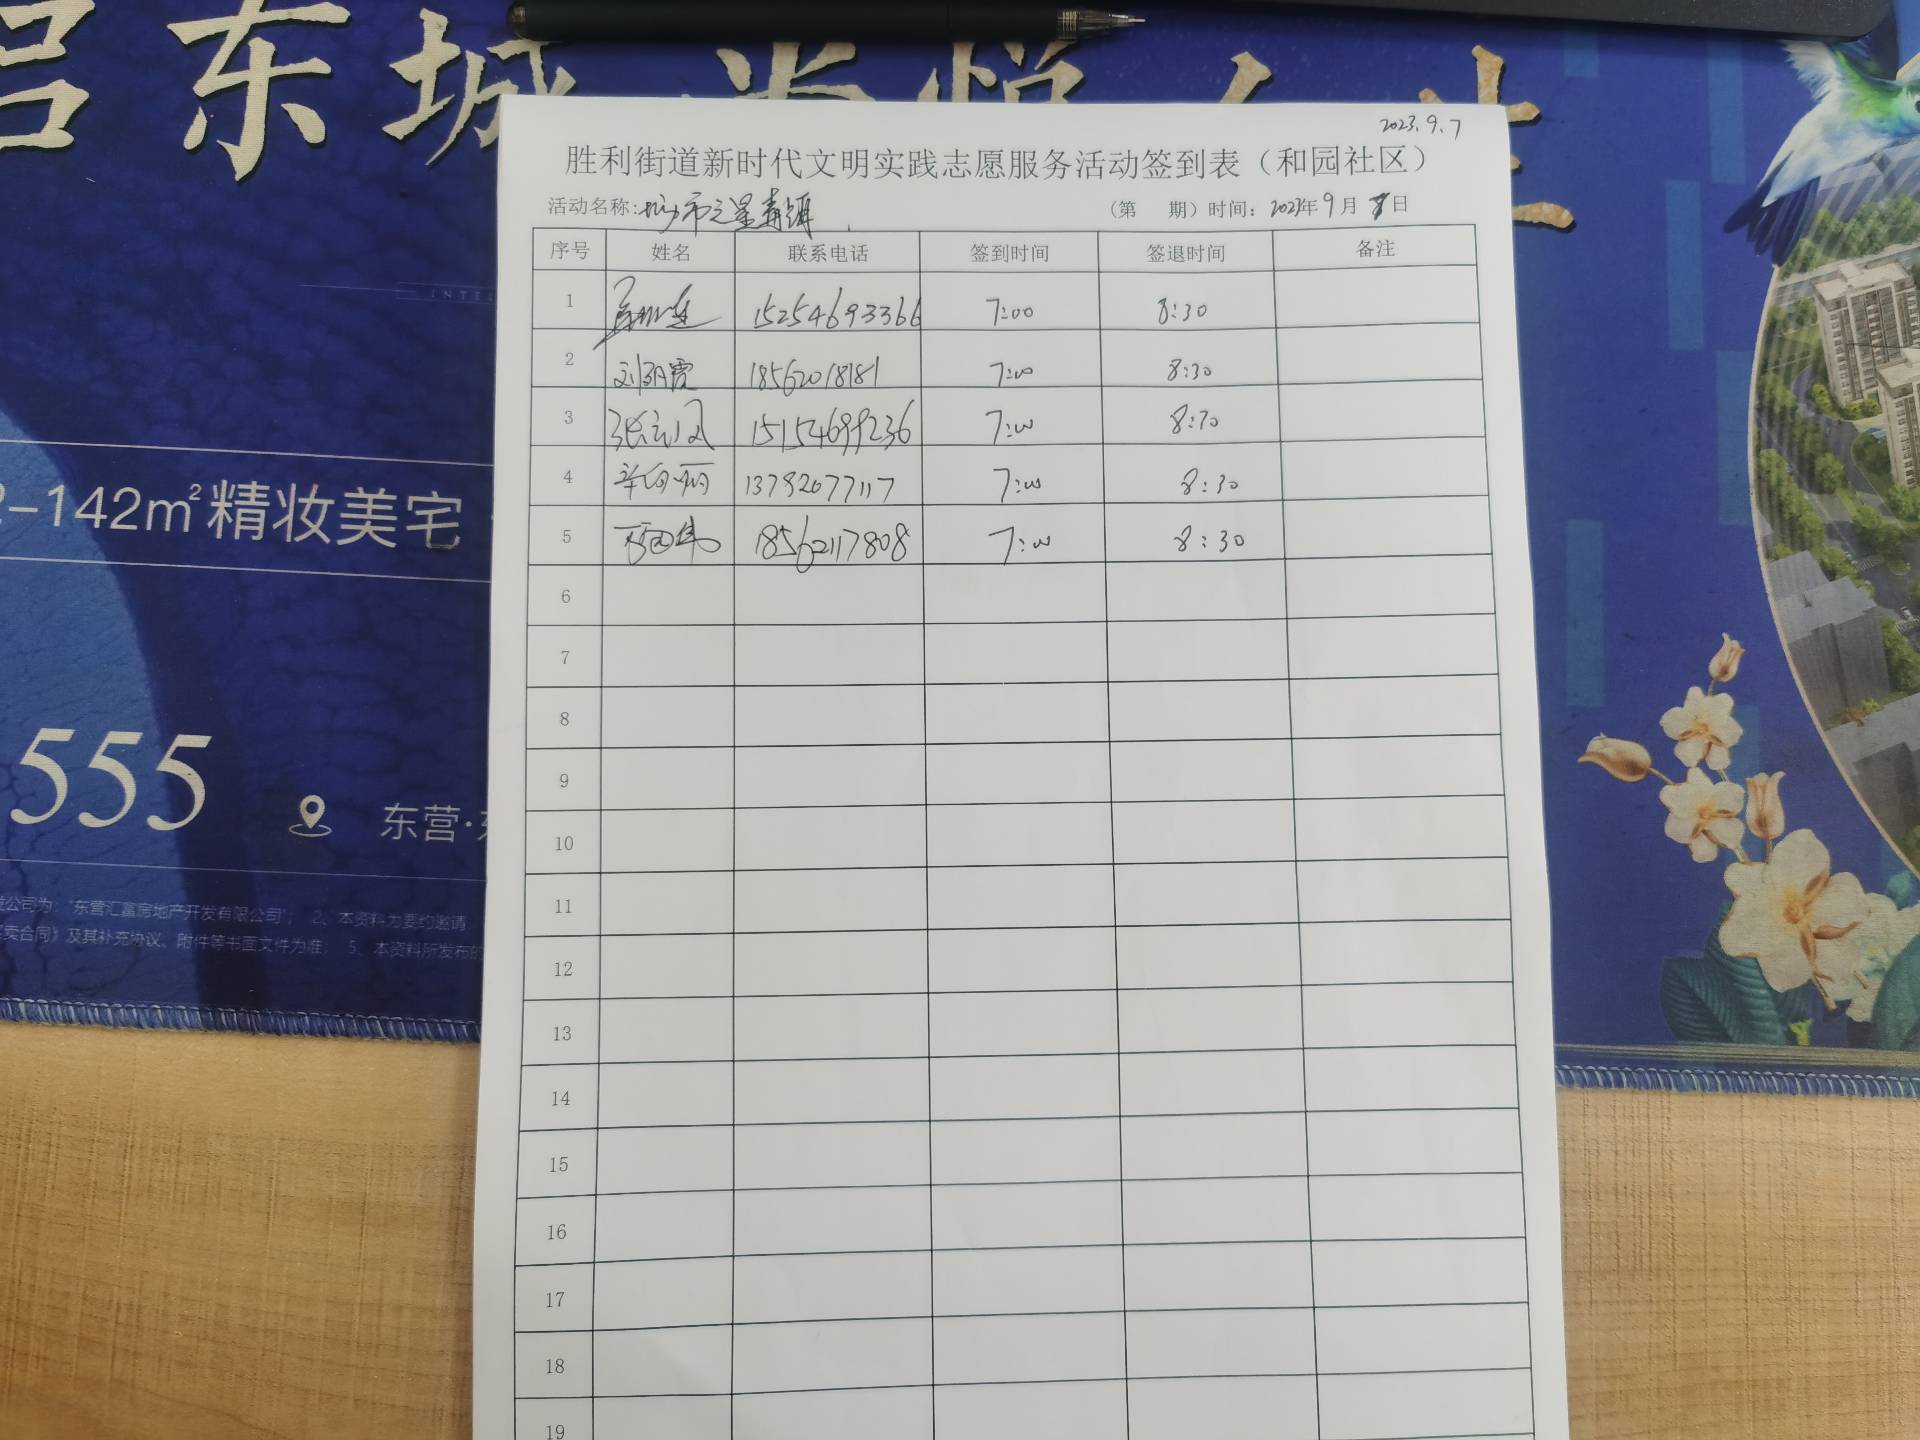 东城
2023.9.7
胜利街道新时代文明实践志愿服务活动签到表（和园社区）
活动名称:
(第 期）时间：2023年9月8日
序号 姓名 联系电话 签到时间 签退时间 备注
1 15254693366 7:00 8:30
2 刘丽霞 18562018181 7:00 8:30
3 张云凤 15154699236 7:00 8:30
4 13792077117 7:00 8:30
5 18562117808 7:00 8:30
6
7
8
9
10
11
12
13
14
15
16
17
18
19
-142m²精妆美宅
555
东营·
公司为："东营汇富房地产开发有限公司"； 2、本资料为要约邀请
卖合同》及其补充协议、附件等书面文件为准； 5、本资料所发布的